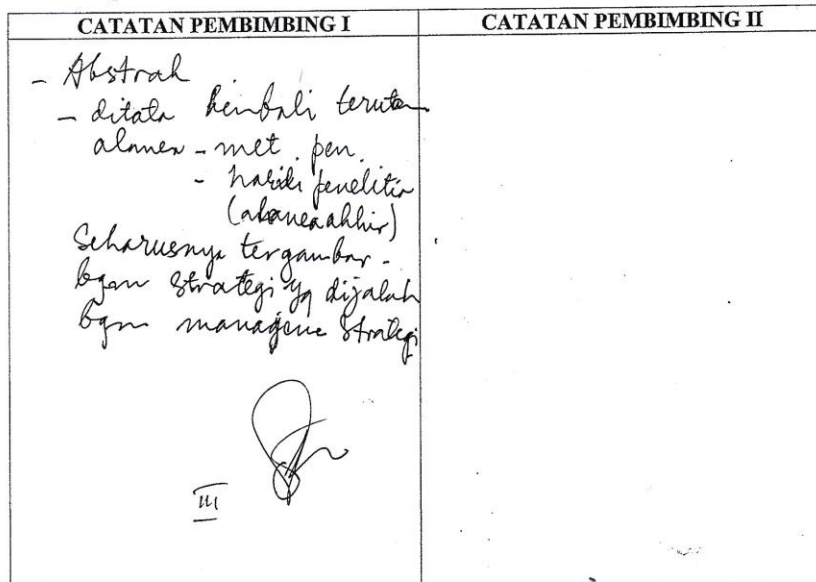 CATATAN PEMBIMBING I
CATATAN PEMBIMBING II
- Abstrak
- ditata kembali terutam
alenea - met. pen.
- hasil penelitia
(alenea akhir)
Seharusnya tergambar -
bgm strategi yg dijalak
bgm manajeme Strategi
III